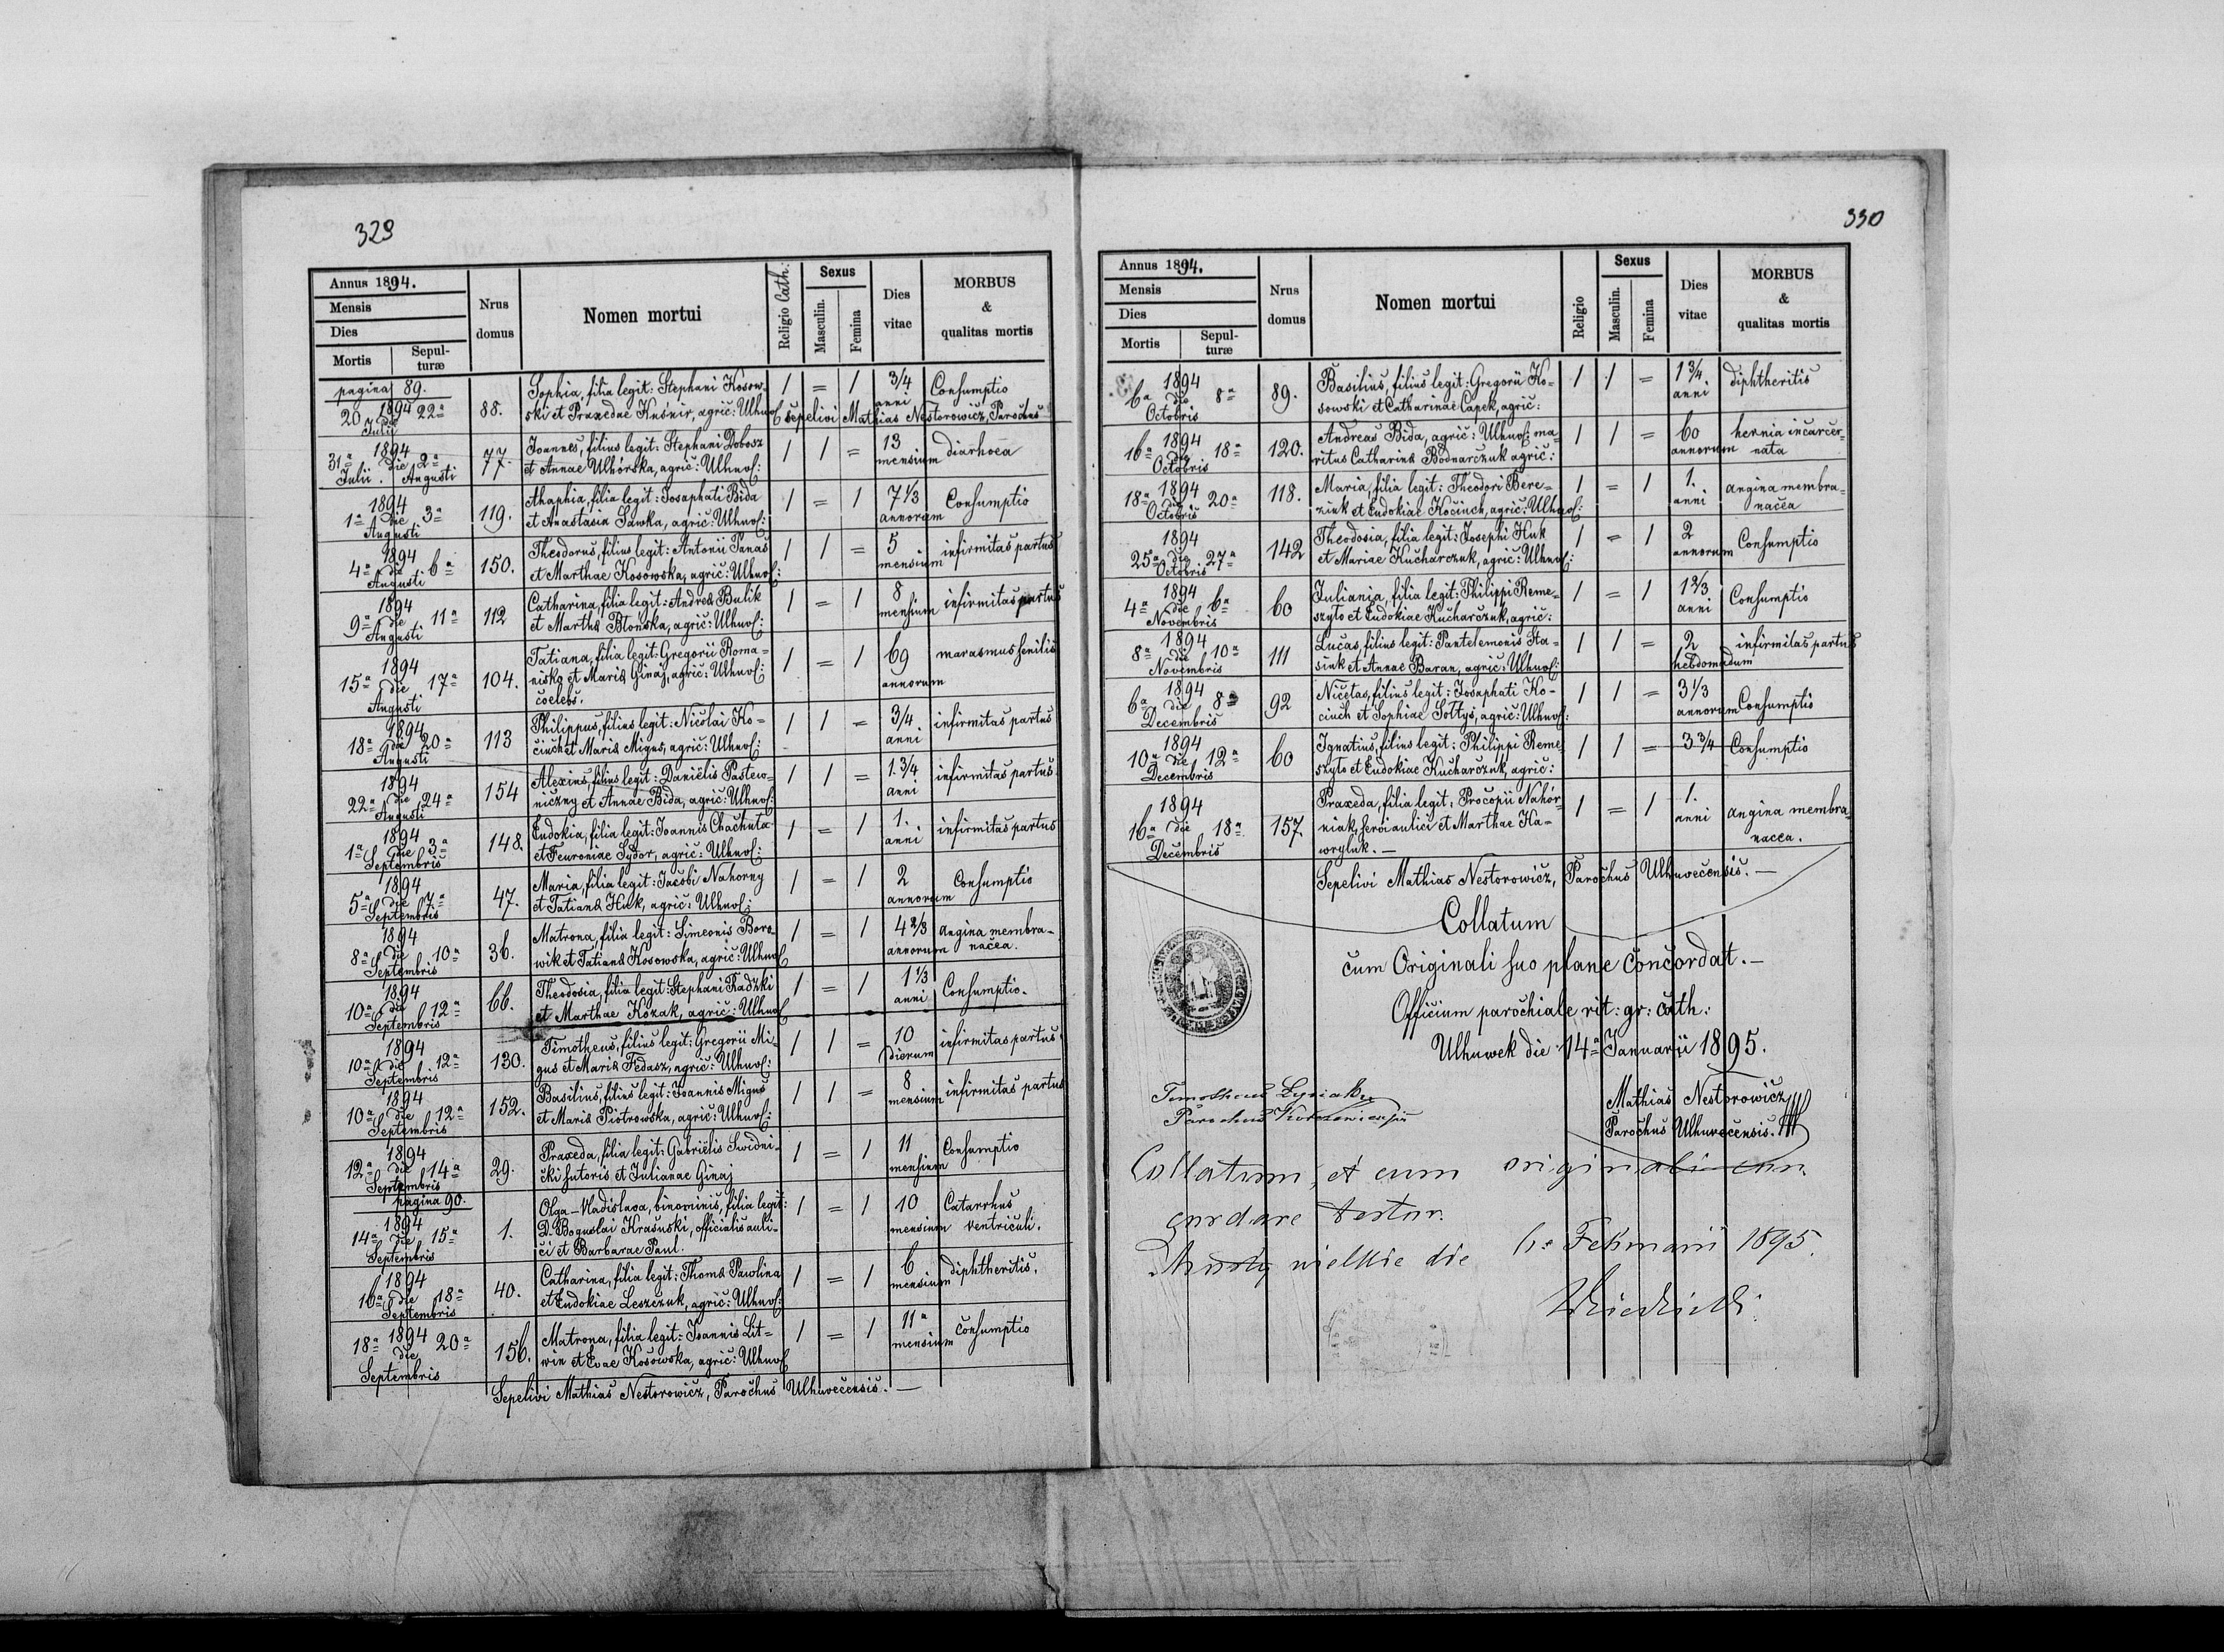 329
Annus 1894.
Mensis
Dies
Mortis
Sepul-
turæ
Nrus
domus
Nomen mortui
Religio Cath:
Sexus
Masculin.
Femina
Dies
vitae
MORBUS
&
qualitas mortis
pagina 89.
1894
20 22ª
Julii
88.
Sophia, filia legit: Stephani Kosow-
ski et Praxedae Kuśnir, agric: Ulhuv:
1 = 1
3/4
anni
Consumptio
sepelivi Mathias Nestorowicz, Parochus
1894
31ª die 2ª
Julii. Augusti
77.
Joannes, filius legit: Stephani Dobosz
et Annae Ulhórska, agric: Ulhuv:
1 1 =
13
mensium
diarhoea
1894
1ª die 3ª
Augusti
119.
Ahaphia, filia legit: Josaphati Bida
et Anastasia Sawka, agric: Ulhuv:
1 = 1
7 1/3
annorum
Consumptio
1894
4ª die 6ª
Augusti
150.
Theodorus, filius legit: Antonii Panas
et Marthae Kosowska, agric: Ulhuv:
1 1 =
5
mensium
infirmitas partus
1894
9ª die 11ª
Augusti
112
Catharina, filia legit: Andrea Bulik
et Martha Błońska, agric: Ulhuv:
1 = 1
8
mensium
infirmitas partus
1894
15ª die 17ª
Augusti
104.
Tatiana, filia legit: Gregorii Roma-
nisko et Maria Ginaj, agric: Ulhuv:
coelebs.
1 = 1
69
annorum
marasmus senilis
1894
18ª die 20ª
Augusti
113
Philippus, filius legit: Nicolai Ko-
ciuch et Maria Migus, agric: Ulhuv:
1 1 =
3/4
anni
infirmitas partus
1894
22ª die 24ª
Augusti
154
Alexius, filius legit: Daniëlis Pastew-
niczny et Annae Bida, agric: Ulhuv:
1 1 =
1.3/4
anni
infirmitas partus
1894
1ª die 3ª
Septembris
148.
Eudokia, filia legit: Joannis Chachuta
et Feuroniae Sydor, agric: Ulhuv:
1 = 1
1.
anni
infirmitas partus
1894
5ª die 7ª
Septembris
47.
Maria, filia legit: Jacobi Nahorny
et Tatiana Huk, agric: Ulhuv:
1 = 1
2
annorum
Consumptio
1894
8ª die 10ª
Septembris
36.
Matrona, filia legit: Simeonis Boro-
wik et Tatiana Kosowska, agric: Ulhuv
1 = 1
4 2/3
annorum
angina membra-
nacea.
1894
10ª die 12ª
Septembris
66.
Theodosia, filia legit: Stephani Radzki
et Marthae Kozak, agric: Ulhuv
1 = 1
1 1/3
anni
Consumptio.
1894
10ª die 12ª
Septembris
130.
Timotheus, filius legit: Gregorii Mi-
gus et Maria Fedasz, agric: Ulhuv:
1 1 =
10
dierum
infirmitas partus
1894
10ª die 12ª
Septembris
152.
Basilius, filius legit: Joannis Migus
et Maria Piotrowska, agric: Ulhuv:
1 1 =
8
mensium
infirmitas partus
1894
12ª die 14ª
Septembris
29.
Praxeda, filia legit: Gabriëlis Swidni-
cki sutoris et Julianae Ginaj
1 = 1
11
mensium
Consumptio
pagina 90.
1894
14ª die 15ª
Septembris
1.
Olga-Vladislava, binominis, filia legit:
D. Boguslai Krasuski, officialis auli-
ci et Barbarae Paul.
1 = 1
10
mensium
Catarrhus
ventriculi.
1894
16ª die 18ª
Septembris
40.
Catharina, filia legit: Thoma Pawlina
et Eudokiae Leszczuk, agric: Ulhuv:
1 = 1
6
mensium
diphtheritis.
1894
18ª die 20ª
Septembris
156.
Matrona, filia legit: Joannis Lit-
win et Evae Kosowska, agric: Ulhuv
1 = 1
11ª
mensium
consumptio
Sepelivi Mathias Nestorowicz, Parochus Ulhuvecensis.—
330
Annus 1894.
Mensis
Dies
Mortis
Sepul-
turæ
Nrus
domus
Nomen mortui
Religio
Sexus
Masculin.
Femina
Dies
vitae
MORBUS
&
qualitas mortis
1894
6ª die 8ª
Octobris
89.
Basilius, filius legit: Gregorii Ko-
sowski et Catharinae Capek, agric:
1 1 =
1 3/4
anni
diphtheritis
1894
16ª die 18ª
Octobris
120.
Andreas Bida, agric: Ulhuv: ma-
ritus Catharina Bodnarczuk agric:
1 1 =
60
annorum
hernia incarcer-
nata
1894
18ª die 20ª
Octobris
118.
Maria, filia legit: Theodori Bere-
ziuk et Eudokiae Kociuch, agric: Ulhuv:
1 = 1
1.
anni
angina membra-
nacea
1894
25ª die 27ª
Octobris
142
Theodosia, filia legit: Josephi Huk
et Mariae Kucharczuk, agric: Ulhuv:
1 = 1
2
annorum
Consumptio
1894
4ª die 6ª
Novembris
60
Juliania, filia legit: Philippi Reme-
szyło et Eudokiae Kucharczuk, agric:
1 = 1
1 2/3
anni
Consumptio
1894
8ª die 10ª
Novembris
111
Lucas, filius legit: Pantelemonis Sta-
siuk et Annae Baran, agric: Ulhuv:
1 1 =
2
hebdomadum
infirmitas partus
1894
6ª die 8ª
Decembris
92
Nicetas, filius legit: Josaphati Ko-
ciuch et Sophiae Sołtys, agric: Ulhuv:
1 1 =
3 1/3
annorum
Consumptio
1894
10ª die 12ª
Decembris
60
Ignatius, filius legit: Philippi Reme
szyło et Eudokiae Kucharczuk, agric:
1 1 =
3 3/4
Consumptio
1894
16ª die 18ª
Decembris
157.
Praxeda, filia legit: Procopii Nahór-
niak, servi aulici et Marthae Ha-
wryluk.—
1 = 1
1.
anni
angina membra-
nacea.
Sepelivi Mathias Nestorowicz, Parochus Ulhuvecensis.—
Collatum
cum Originali suo plane concordat.—
Officium parochiale rit: gr: cath:
Ulhuwek die 14ª Januarii 1895.
Mathias Nestorowicz
Parochus Ulhuvecensis.
Timotheus
Parochus
Collatum, et cum originali con-
cordare testor.
wielkie die 1895.